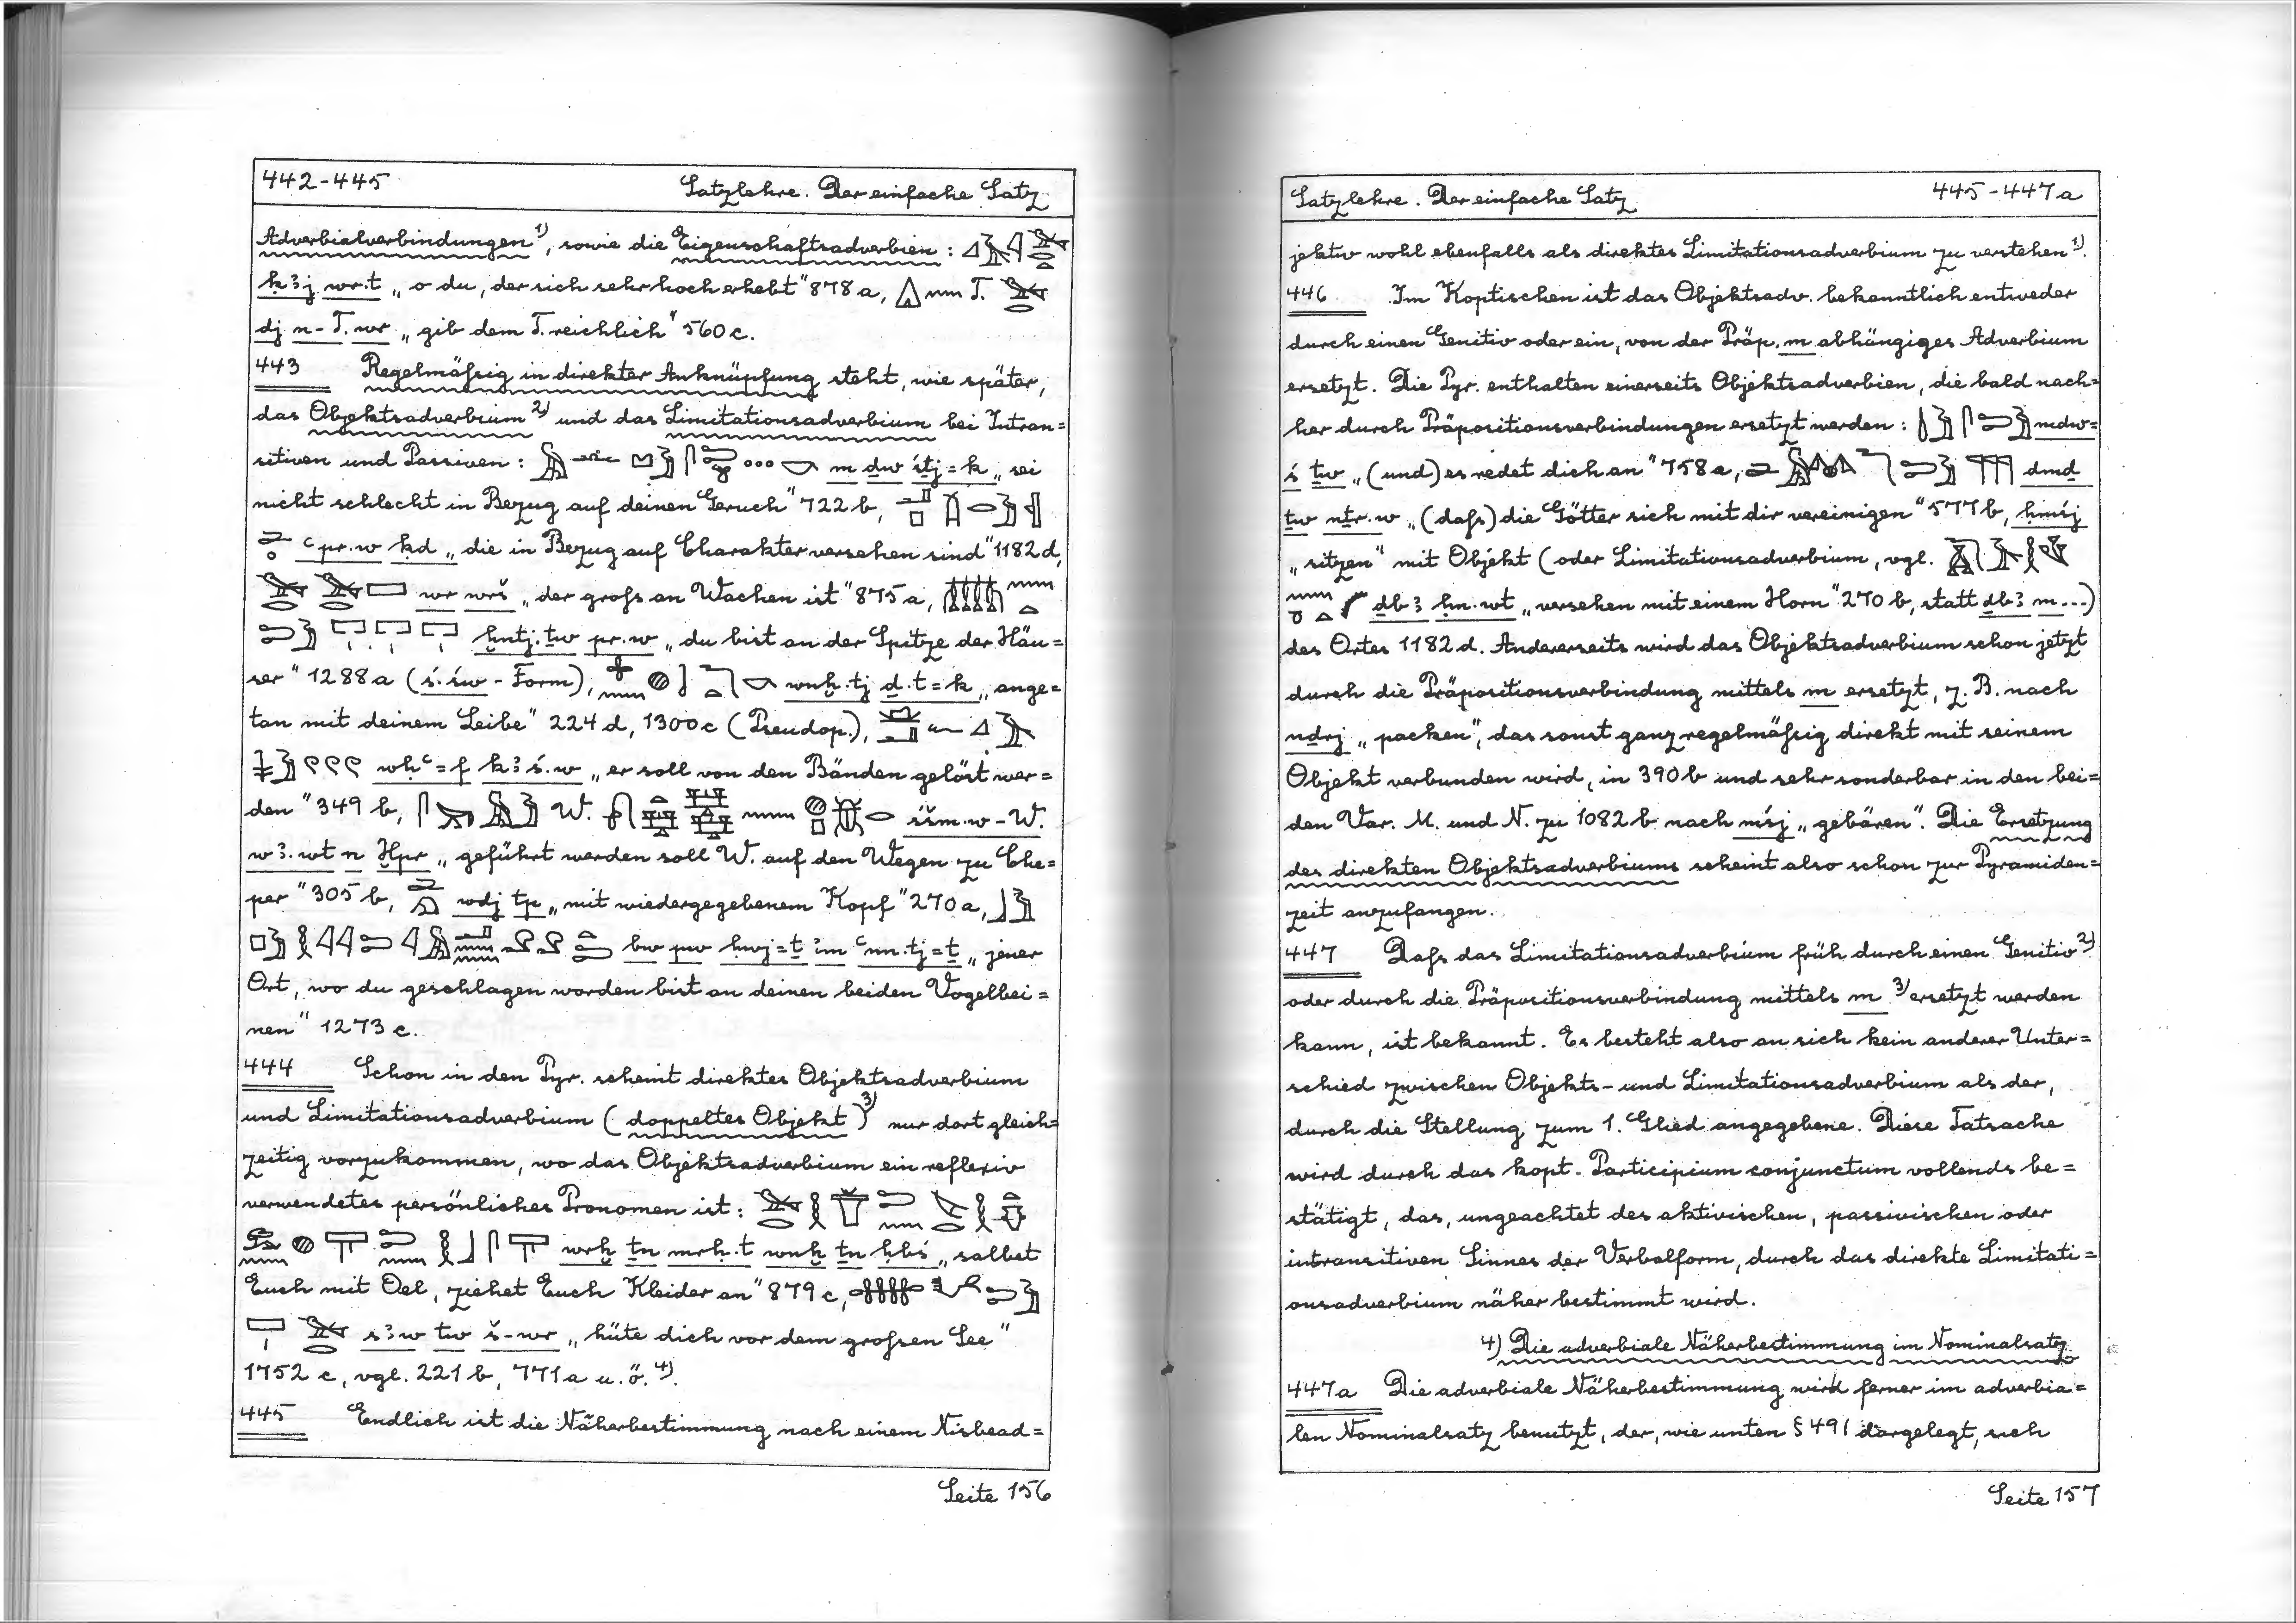 442-445 Satzlehre. Der einfache Satz
Adverbialverbindungen ¹⁾, sowie die Eigenschaftsadverbien :
ḳꜣj wr.t „o du, der sich sehr hoch erhebt" 878a, T.
dj n-T. wr „gib dem T. reichlich" 560c.
443 Regelmäßig in direkter Anknüpfung steht, wie später,
das Objektsadverbium ²⁾ und das Limitationsadverbium bei Intran=
sitiven und Passiven : m dw śtj=k „sei
nicht schlecht in Bezug auf deinen Geruch" 722b,
ꜥpr.w ḳd „die in Bezug auf Charakter versehen sind" 1182d,
wr wrš „der groß an Wachen ist" 875a,
ḫntj.tw pr.w „du bist an der Spitze der Häu=
ser" 1288a (ś.św-Form), wnḫ.tj ḏ.t=k „ange=
tan mit deinem Leibe" 224d, 1300c (Pseudop.),
wḥꜥ=f kꜣś.w „er soll von den Bänden gelöst wer=
den" 349b, W. śšm.w-W.
wꜣ.wt n Ḫpr „geführt werden soll W. auf den Wegen zu Che=
per" 305b, wdj tp „mit wiedergegebenem Kopf" 270a,
bw pw ḥwj=ṯ im ꜥnn.tj=ṯ „jener
Ort, wo du geschlagen worden bist an deinen beiden Vogelbei=
nen" 1273c.
444 Schon in den Pyr. scheint direktes Objektsadverbium
und Limitationsadverbium (doppeltes Objekt)³⁾ nur dort gleich=
zeitig vorzukommen, wo das Objektsadverbium ein reflexiv
verwendetes persönliches Pronomen ist :
wrḥ ṯn mrḥ.t wnḫ ṯn ḥbś „salbet
Euch mit Oel, ziehet Euch Kleider an" 879c,
sꜣw ṯw š-wr „hüte dich vor dem großen See"
1752c, vgl. 221b, 771a u.ö. ⁴⁾.
445 Endlich ist die Näherbestimmung nach einem Nisbead=
Seite 156
Satzlehre. Der einfache Satz 445-447a
jektiv wohl ebenfalls als direktes Limitationsadverbium zu verstehen ¹⁾.
446 Im Koptischen ist das Objektsadv. bekanntlich entweder
durch einen Genitiv oder ein, von der Präp. m abhängiges Adverbium
ersetzt. Die Pyr. enthalten einerseits Objektsadverbien, die bald nach=
her durch Präpositionsverbindungen ersetzt werden : mdw=
ś ṯw „(und) es redet dich an" 758a, dmḏ
ṯw nṯr.w „(daß) die Götter sich mit dir vereinigen" 577b, ḥmśj
„sitzen" mit Objekt (oder Limitationsadverbium, vgl.
ḏbꜣ ḥn.wt „versehen mit einem Horn" 270b, statt ḏbꜣ m...)
des Ortes 1182d. Andererseits wird das Objektsadverbium schon jetzt
durch die Präpositionsverbindung mittels m ersetzt, z. B. nach
nḏrj „packen", das sonst ganz regelmäßig direkt mit seinem
Objekt verbunden wird, in 390b und sehr sonderbar in den bei=
den Var. M. und N. zu 1082b nach mśj „gebären". Die Ersetzung
des direkten Objektsadverbiums scheint also schon zur Pyramiden=
zeit anzufangen.
447 Daß das Limitationsadverbium früh durch einen Genitiv ²⁾
oder durch die Präpositionsverbindung mittels m ³⁾ ersetzt werden
kann, ist bekannt. Es besteht also an sich kein anderer Unter=
schied zwischen Objekts- und Limitationsadverbium als der,
durch die Stellung zum 1. Glied angegebene. Diese Tatsache
wird durch das kopt. Participium conjunctum vollends be=
stätigt, das, ungeachtet des aktivischen, passivischen oder
intransitiven Sinnes der Verbalform, durch das direkte Limitati=
onsadverbium näher bestimmt wird.
4) Die adverbiale Näherbestimmung im Nominalsatz
447a Die adverbiale Näherbestimmung wird ferner im adverbia=
len Nominalsatz benutzt, der, wie unten § 491 dargelegt, sich
Seite 157